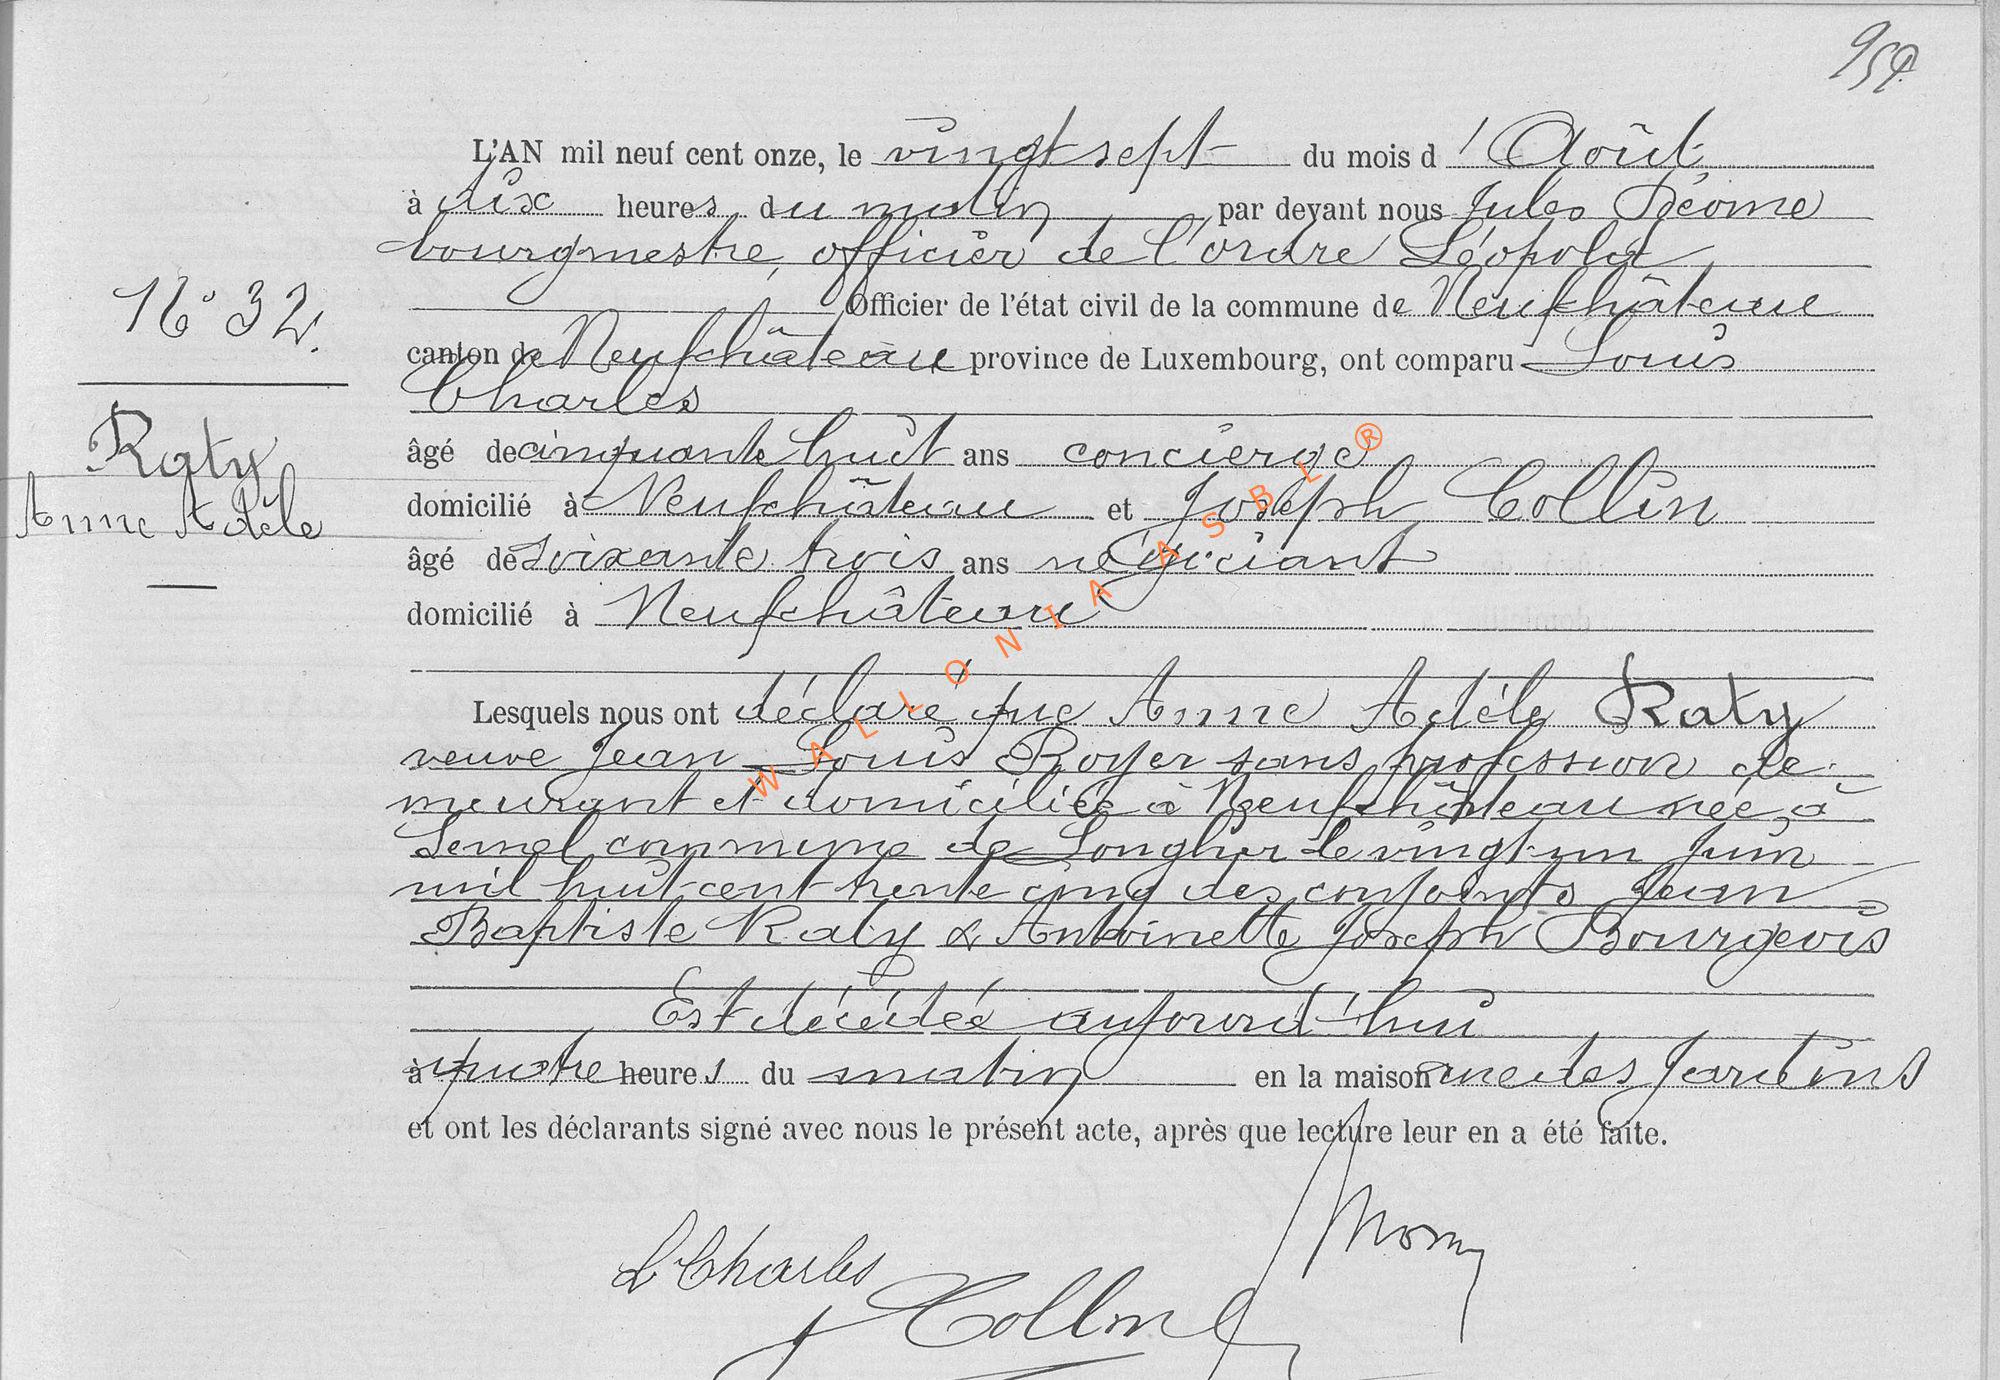 L'AN mil neuf cent onze, le vingt sept du mois d'Août
à dix heures du matin par devant nous Jules
bourgmestre, officier de l'ordre Léopold
Officier de l'état civil de la commune de Neufchâteau
canton de Neufchâteau province de Luxembourg, ont comparu Louis
Charles
âgé de cinquante huit ans concierge
domicilié à Neufchâteau et Joseph Collin
âgé de soixante trois ans négociant
domicilié à Neufchâteau
N° 32.
Raty
Anne Adèle
Lesquels nous ont déclaré que Anne Adèle Raty
veuve Jean Louis Royer sans profession de
meurant et domiciliée à Neufchâteau née à
Semel commune de Longlier le vingt-un Juin
mil huit cent trente cinq des conjoints Jean
Baptiste Raty & Antoinette Joseph Bourgeois
Est décédée aujourd'hui
à quatre heures du matin en la maison rue des Jardins
et ont les déclarants signé avec nous le présent acte, après que lecture leur en a été faite.
L Charles
Collin
WALLONIA ASBL ®